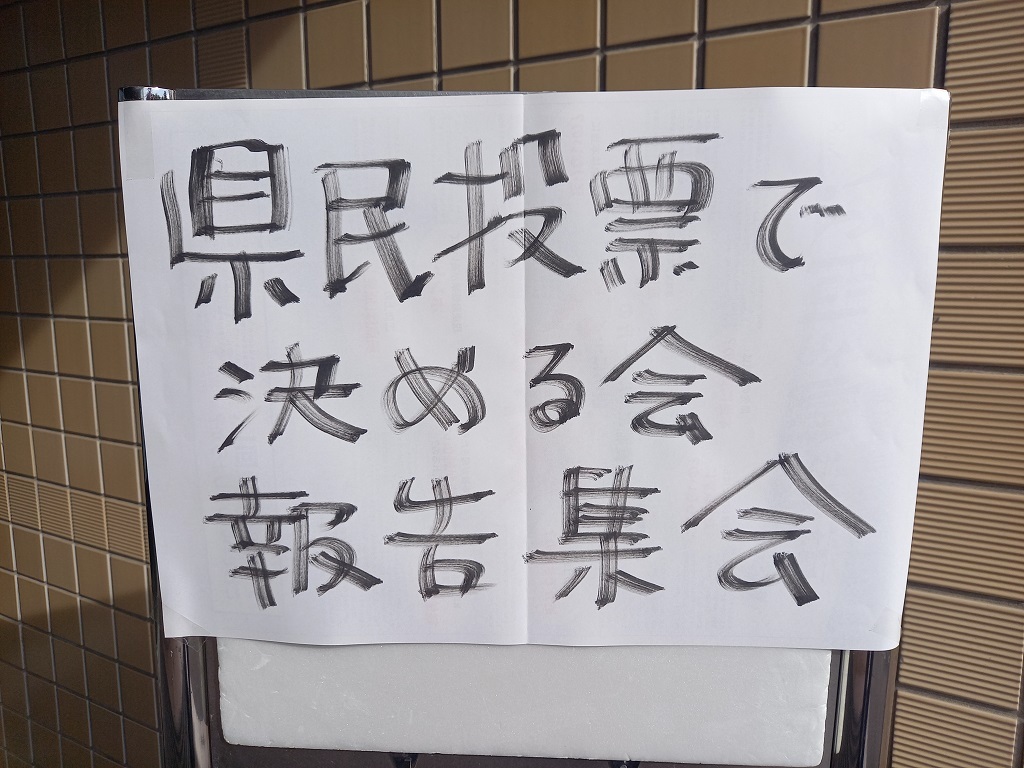 県民投票で
決める会
報告集会